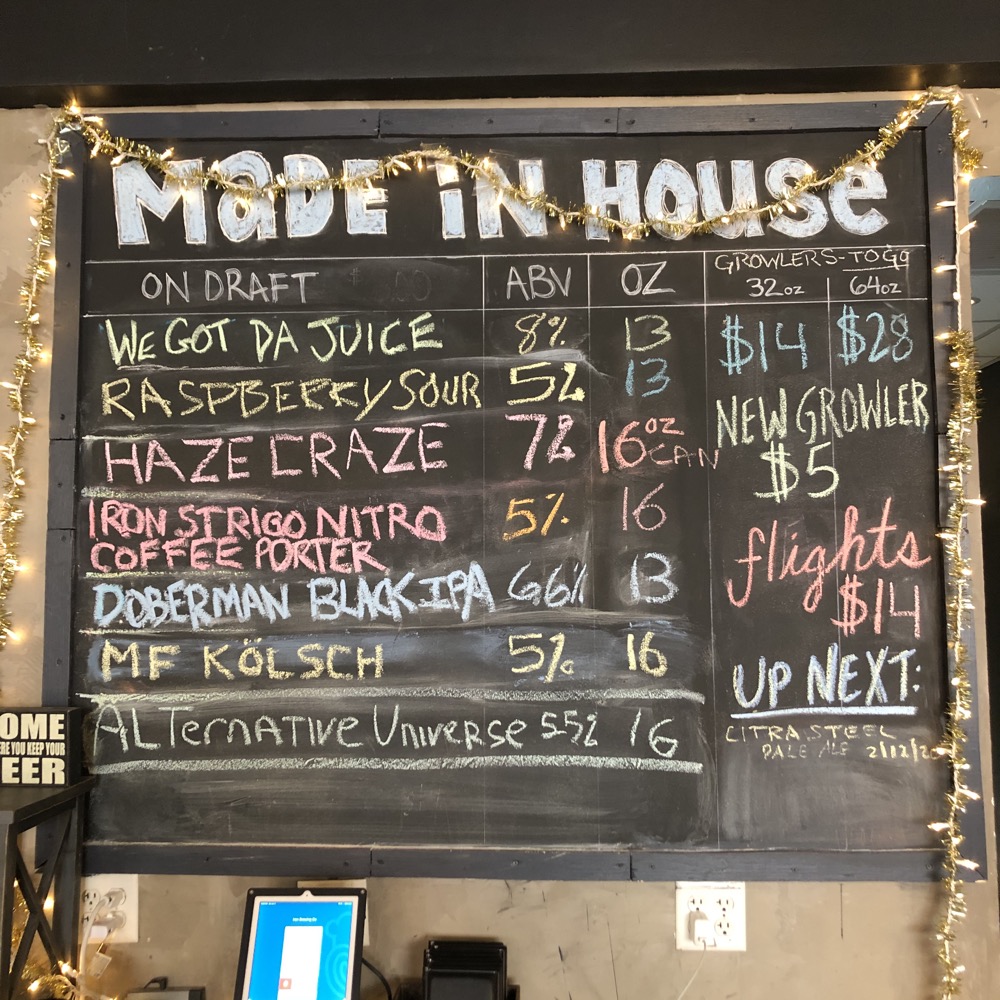 MADE IN HOUSE
ON DRAFT ABV OZ GROWLERS-TO GO
32oz 64oz
WE GOT DA JUICE 8% 13 $14 $28
RASPBERRY SOUR 5% 13
NEW GROWLER
$5
HAZE CRAZE 7% 16oz CAN
IRON STRIGO NITRO
COFFEE PORTER 5% 16
flights
$14
DOBERMAN BLACK IPA 66% 13
MF KÖLSCH 5% 16
UP NEXT:
CITRA STEEL
PALE ALE 2/12/20
ALTernative Universe 55% 16
OME
RE YOU KEEP YOUR
EER